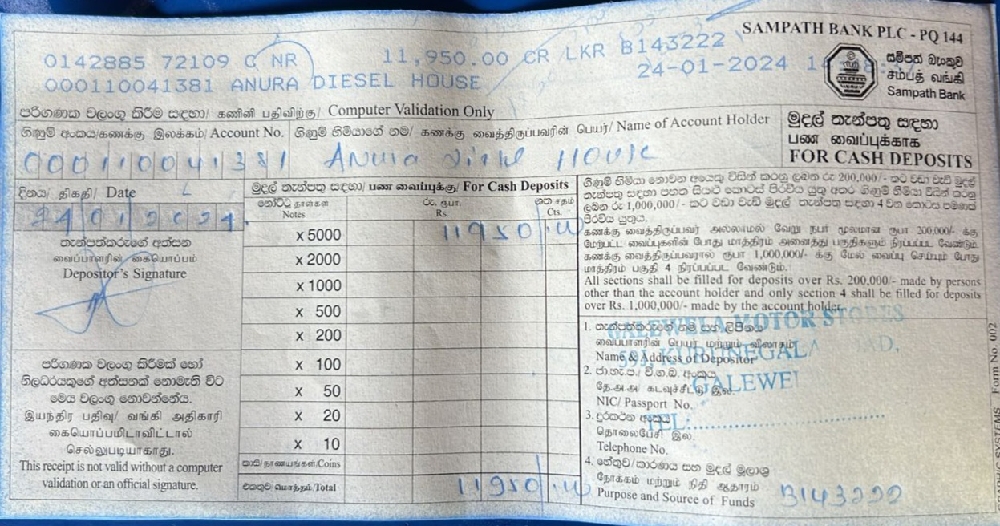 SAMPATH BANK PLC - PQ 144
0142885 72109 C NR 11,950.00 CR LKR B143222
24-01-2024
000110041381 ANURA DIESEL HOUSE
සම්පත් බැංකුව
சம்பத் வங்கி
Sampath Bank
පරිගණක වලංගු කිරීම සඳහා/ கணினி பதிவிற்கு/ Computer Validation Only
ගිණුම් අංකය/கணக்கு இலக்கம்/ Account No.
ගිණුම් හිමියාගේ නම/ கணக்கு வைத்திருப்பவரின் பெயர்/ Name of Account Holder
000110041381
Anura Diesel House
මුදල් තැන්පතු සඳහා
பண வைப்புக்காக
FOR CASH DEPOSITS
දිනය/ திகதி/ Date
24012024
තැන්පත්කරුගේ අත්සන
வைப்பாளரின் கையொப்பம்
Depositor's Signature
පරිගණක වලංගු කිරීමක් හෝ
නිලධරයකුගේ අත්සනක් නොමැති විට
මෙය වලංගු නොවන්නේය.
இயந்திர பதிவு/ வங்கி அதிகாரி
கையொப்பமிடாவிட்டால்
செல்லுபடியாகாது.
This receipt is not valid without a computer
validation or an official signature.
මුදල් තැන්පතු සඳහා/ பண வைப்புக்கு/ For Cash Deposits
නෝට්ටු தாள்கள்
Notes
රු. ரூபா
Rs
ශත சதம்
Cts.
x 5000 11950
x 2000
x 1000
x 500
x 200
x 100
x 50
x 20
x 10
කාසි/நாணயங்கள்/Coins
එකතුව/மொத்தம்/Total 11950
ගිණුම් හිමියා නොවන අයෙකු විසින් කරනු ලබන රු 200,000/- කට වඩා වැඩි මුදල්
තැන්පතු සඳහා පහත සියලු කොටස් පිරවිය යුතු අතර ගිණුම් හිමියා විසින් කරනු
ලබන රු 1,000,000/- කට වඩා වැඩි මුදල් තැන්පතු සඳහා 4 වන කොටස පමණක්
පිරවිය යුතුය.
கணக்கு வைத்திருப்பவர் அல்லாமல் வேறு நபர் மூலமான ரூபா 200,000/- க்கு
மேற்பட்ட வைப்புகளின் போது மாத்திரம் அனைத்து பகுதிகளும் நிரப்பப்பட வேண்டும்.
கணக்கு வைத்திருப்பவரால் ரூபா 1,000,000/- க்கு மேல் வைப்பு செய்யும் போது
மாத்திரம் பகுதி 4 நிரப்பப்பட வேண்டும்.
All sections shall be filled for deposits over Rs. 200,000/- made by persons
other than the account holder and only section 4 shall be filled for deposits
over Rs. 1,000,000/- made by the account holder.
GALEWELA MOTOR STORES
KURUNEGALA ROAD,
GALEWE
TEL:
1. තැන්පත්කරුගේ නම සහ ලිපිනය
வைப்பாளரின் பெயர் மற்றும் விலாசம்
Name & Address of Depositor
2. ජා.හැ.ප./ වි.ග.බ. අංකය
தே.அ.அ கடவுச்சீட்டு இல.
NIC/ Passport No.
3. දුරකථන අංකය
தொலைபேசி இல.
Telephone No.
4. හේතුව/කාරණය සහ මුදල් මූලාශ්‍ර
நோக்கம் மற்றும் நிதி ஆதாரம்
Purpose and Source of Funds
B143222
Form No. 002